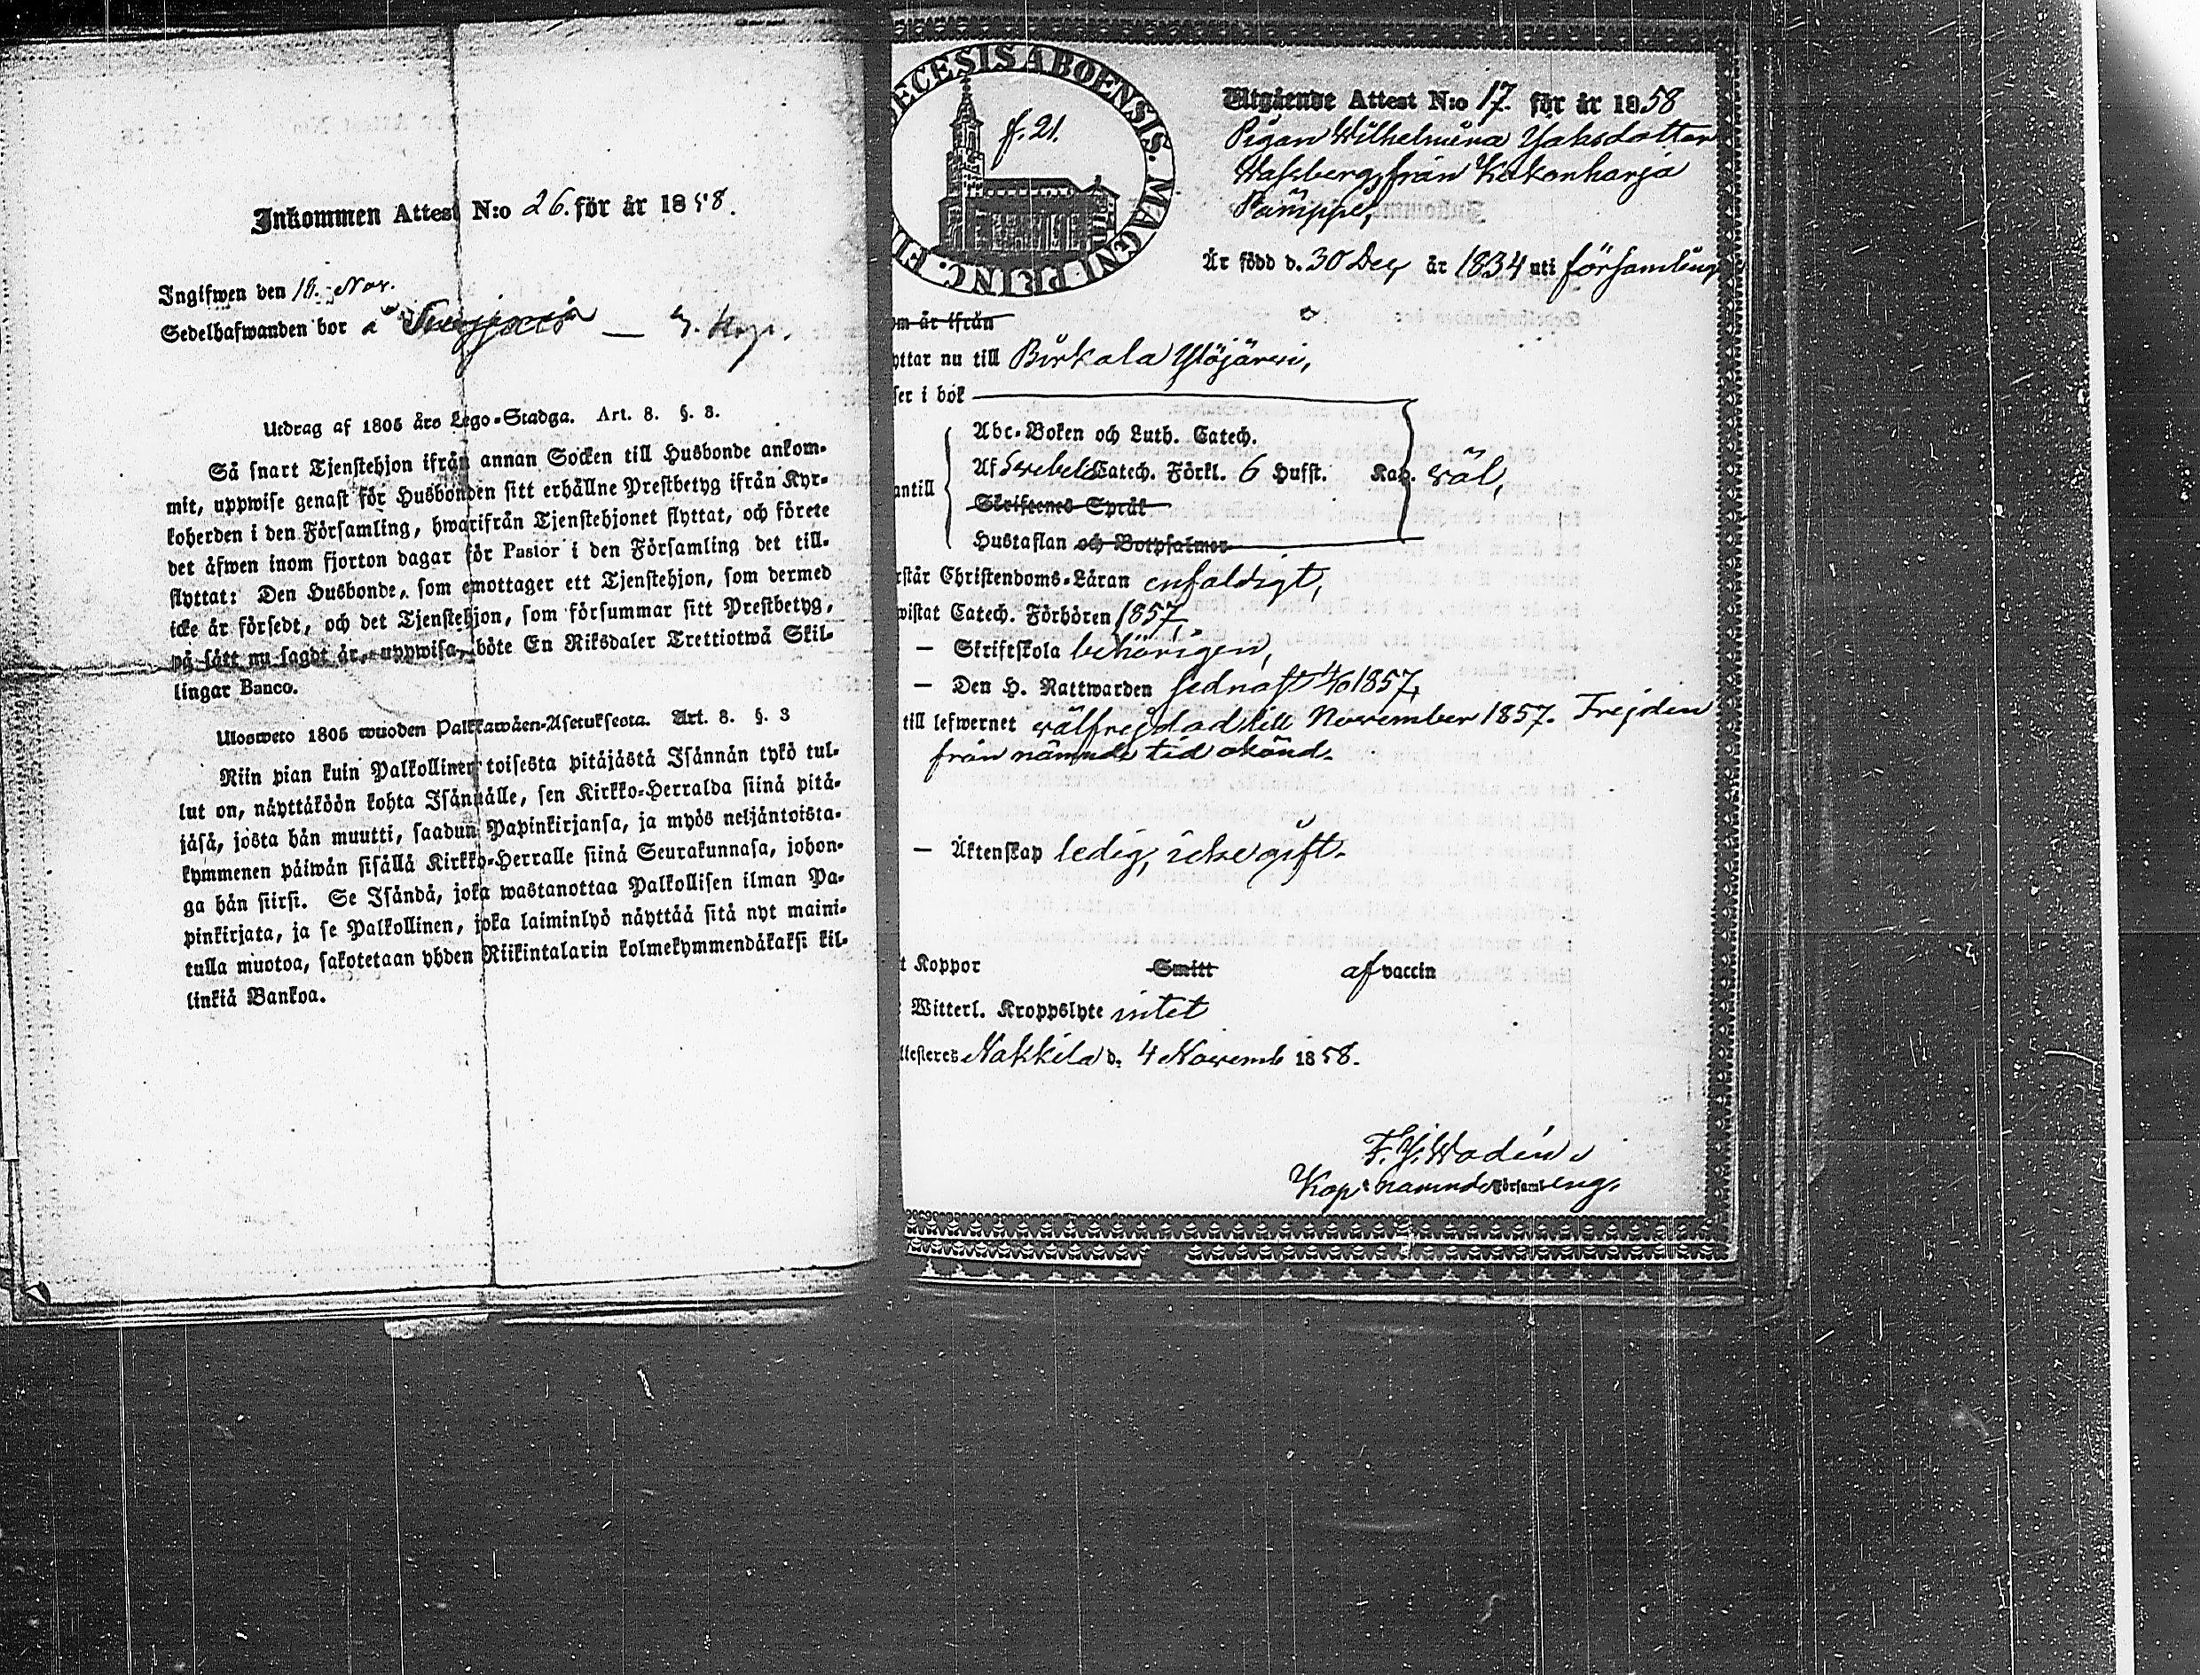 Inkommen Attest N:o 26. för år 1858.
Ingifwen den 18. Nov.
Sedelhafwanden bor
Utdrag af 1805 års Lego-Stadga. Art. 8. §. 3.
Så snart Tjenstehjon ifrån annan Socken till Husbonde ankom-
mit, uppwise genast för Husbonden sitt erhållne Prestbetyg ifrån Kyr-
koherden i den Församling, hwarifrån Tjenstehjonet flyttat, och förete
det äfwen inom fjorton dagar för Pastor i den Församling det till-
flyttat: Den Husbonde, som emottager ett Tjenstehjon, som dermed
icke är försedt, och det Tjenstehjon, som försummar sitt Prestbetyg,
på sätt nu sagdt är, uppwisa, böte En Riksdaler Trettiotwå Skil-
lingar Banco.
Ulosweto 1805 wuoden Palkkawäen-Asetuksesta. Art. 8. §. 3
Niin pian kuin Palkollinen toisesta pitäjästä Isännän tykö tul-
lut on, näyttäköön kohta Isännälle, sen Kirkko-Herralda siinä pitä-
jäsä, josta hän muutti, saadun Papinkirjansa, ja myös neljäntoista-
kymmenen päiwän sisällä Kirkko-Herralle siinä Seurakunnasa, johon-
ga hän siirsi. Se Isändä, joka wastanottaa Palkollisen ilman Pa-
pinkirjata, ja se Palkollinen, joka laiminlyö näyttää sitä nyt maini-
tulla muotoa, sakotetaan yhden Riikintalarin kolmekymmendäkaksi kil-
linkiä Bankoa.
ECESIS ABOENSIS. MAGNI PRINC. FI
f. 21.
Utgående Attest N:o 17. för år 1858
Pigan Wilhelmina Jaksdotter
från Kukonharja
Är född d. 30 Dec, år 1834 uti församling
om är ifrån
yttar nu till Birkala Ylöjärvi,
ser i bok
Abc-Boken och Luth. Catech.
Af Svebelii Catech. Förkl. 6 Hufst. Kap. väl,
antill
Skriftenes Språk
Hustaflan och Botpsalmer
rstår Christendoms-Läran enfaldigt,
wistat Catech. Förhören 1857,
— Skriftskola behörigen,
— Den H. Nattwarden sednast 4/10 1857,
till lefwernet välfrejdad till November 1857. Frejden
från nämnde tid okänd.
— Äktenskap ledig, icke gift.
t Koppor Smitt af vaccin
Witterl. Kroppslyte intet
ttesteres Nakkila d. 4 Novemb 1858.
Kap. i nämnde Församling.